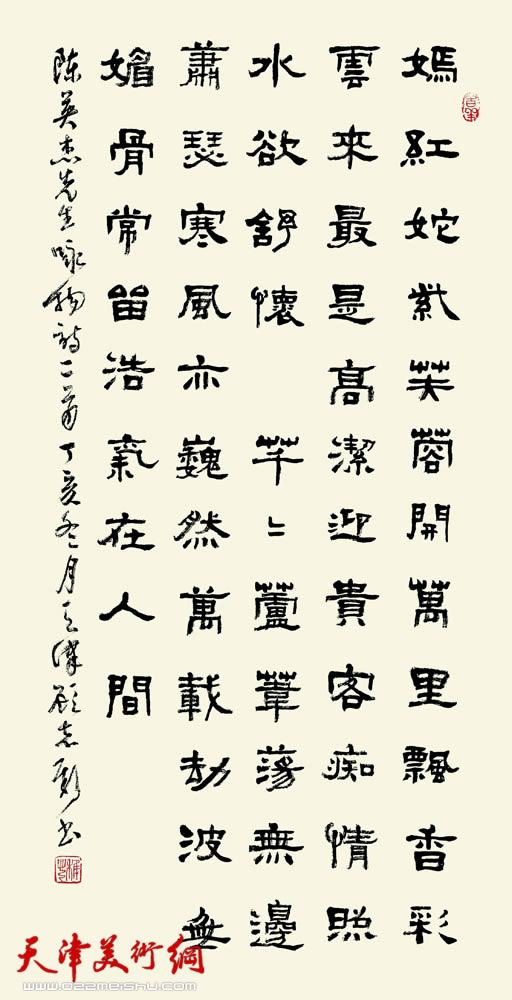 嫣紅姹紫芙蓉開萬里飄香彩
雲来最是髙潔迎貴客痴情照
水欲舒懷　芊〻蘆葦蕩無邊
蕭瑟寒風亦巍然萬載劫波無
媚骨常留浩氣在人間
陈英杰先生咏物詩二首丁亥冬月天津顾志新书
天津美術網
www.022meishu.com